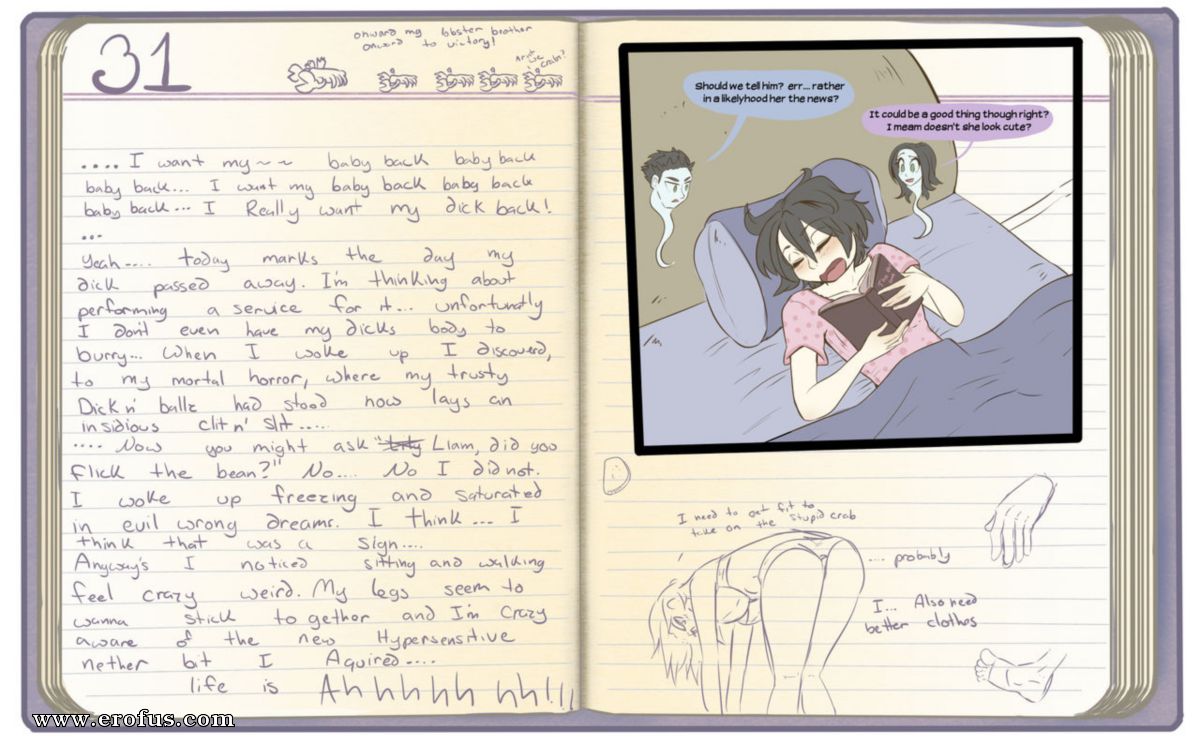 31
onward my lobster brother
onward to victory!
Arnt we crabs?
.... I want my~~ baby back baby back
baby back... I want my baby back baby back
baby back... I Really want my dick back!
...
Yeah.... today marks the day my
dick passed away. I'm thinking about
performing a service for it... unfortunatly
I don't even have my dicks body to
burry... When I woke up I discoverd,
to my mortal horror, where my trusty
Dick n' ballz had stood now lays an
insidious clit n' slit.....
.... Now you might ask "Liam, did you
flick the bean?" No.... No I did not.
I woke up freezing and saturated
in evil wrong dreams. I think... I
think that was a sign....
Anyway's I noticed sitting and walking
feel crazy weird. My legs seem to
wanna stick to gether and I'm crazy
aware of the new Hypersensitive
nether bit I Aquired....
life is Ahhhhh hh!!!
Should we tell him? err... rather
in a likelyhood her the news?
It could be a good thing though right?
I meam doesn't she look cute?
I need to get fit to
take on the stupid crab
.... probably
I... Also need
better clothes
www.erofus.com